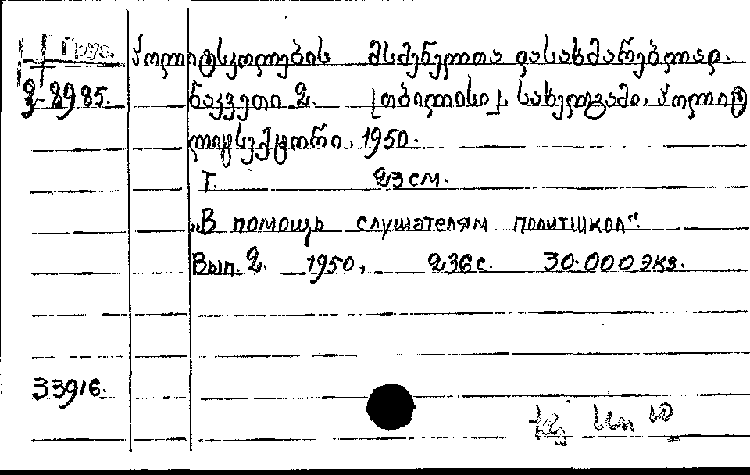 Груз.
პოლიტსკოლების მსმენელთა დასახმარებლად.
3-2985.
ნაკვეთი 2. [თბილისი], სახელგამი, პოლიტ
ლიტსექტორი, 1950.
Т. 23 см.
„В помощь слушателям политшкол".
Вып. 2. 1950, 236 с. 30.000 экз.
33916.